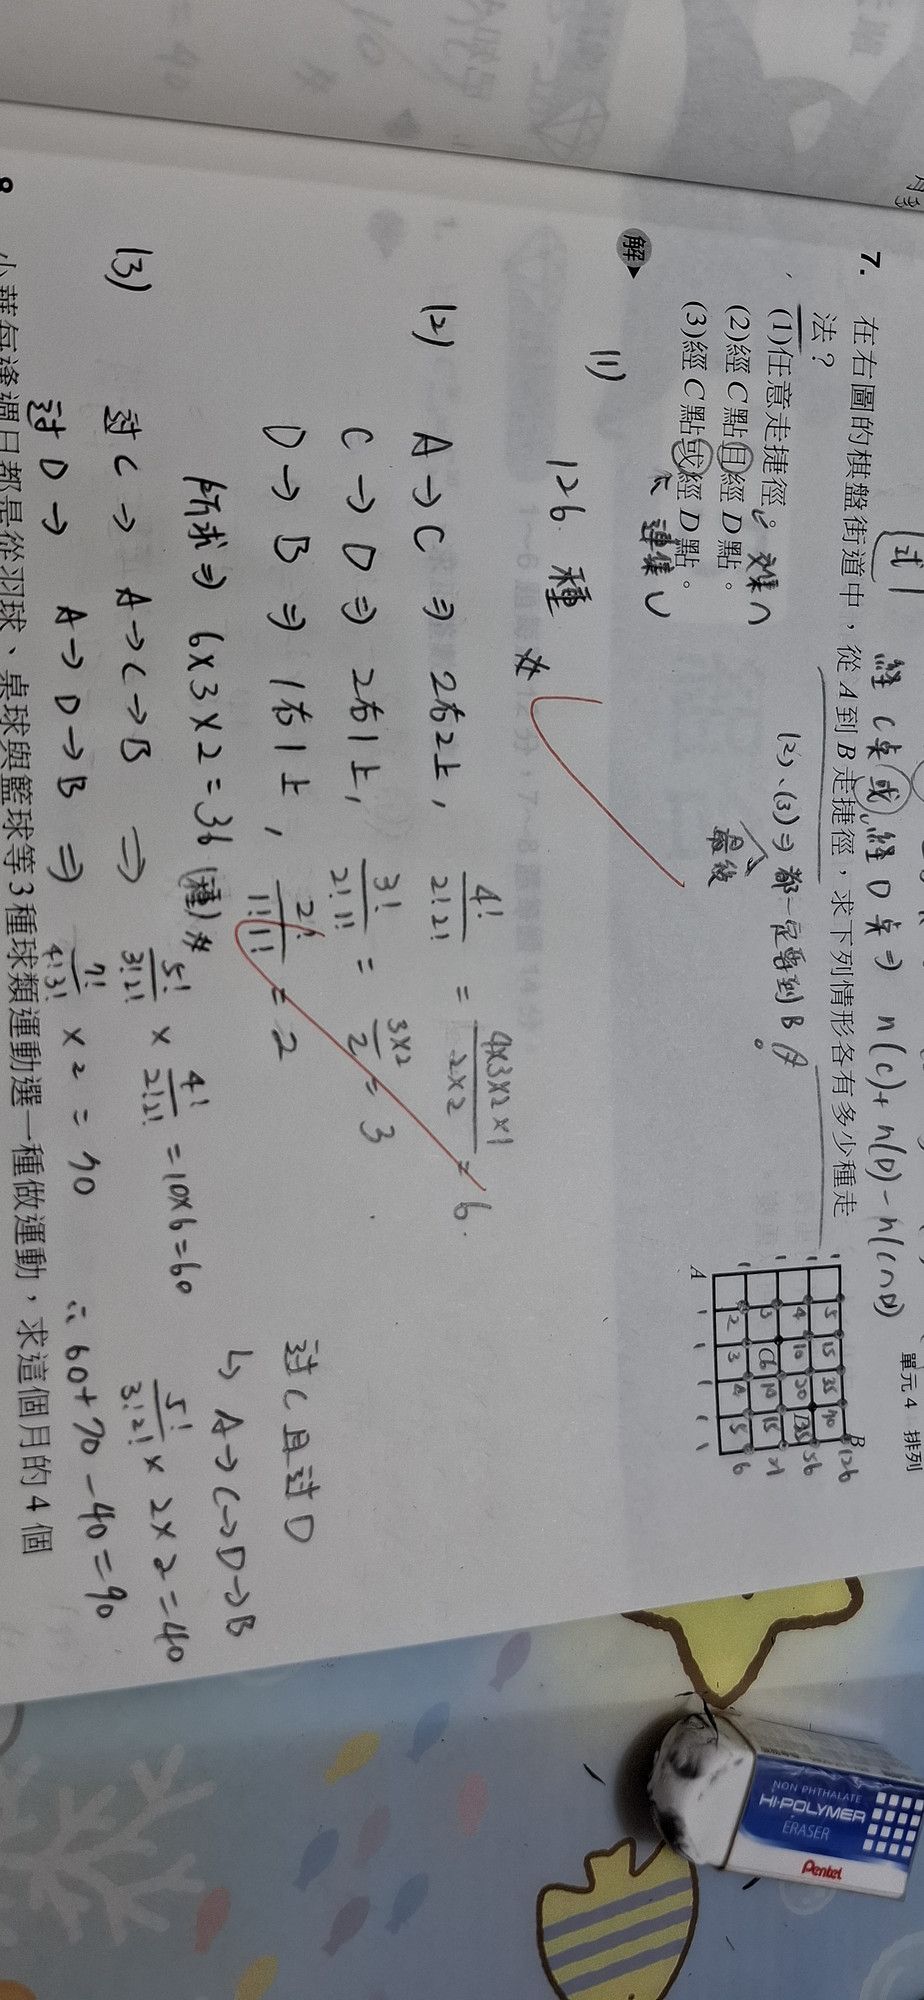 單元 4 排列
經 C 點 或 經 D 點 ⇒ n(C)+n(D)-n(C∩D)
7. 在右圖的棋盤街道中，從 A 到 B 走捷徑，求下列情形各有多少種走
法？
(1)任意走捷徑。
(2)經 C 點且經 D 點。
交集 ∩
(3)經 C 點或經 D 點。
連集 ∪
(2)、(3) ⇒ 都一定要到 B
最後
B
1 5 15 35 70 126
1 4 10 20 35 56
1 3 6 10 15 21
1 2 3 4 5 6
A 1 1 1 1 1
解
(1)
126 種 #
(2) A → C ⇒ 2右2上， 4!/2!2! = 4×3×2×1/2×2 = 6
C → D ⇒ 2右1上， 3!/2!1! = 3×2/2 = 3
D → B ⇒ 1右1上， 2!/1!1! = 2
所求 ⇒ 6×3×2=36 (種) #
過 C 且過 D
↳ A→C→D→B
5!/3!2! × 2×2=40
(3) 過 C → A→C→B ⇒ 5!/3!2! × 4!/2!2! =10×6=60
過 D → A→D→B ⇒ 7!/4!3! ×2=70 ∴ 60+70-40=90
8. 小華每逢週日都是從羽球、桌球與籃球等 3 種球類運動選一種做運動，求這個月的 4 個
NON PHTHALATE
HI-POLYMER
ERASER
Pentel